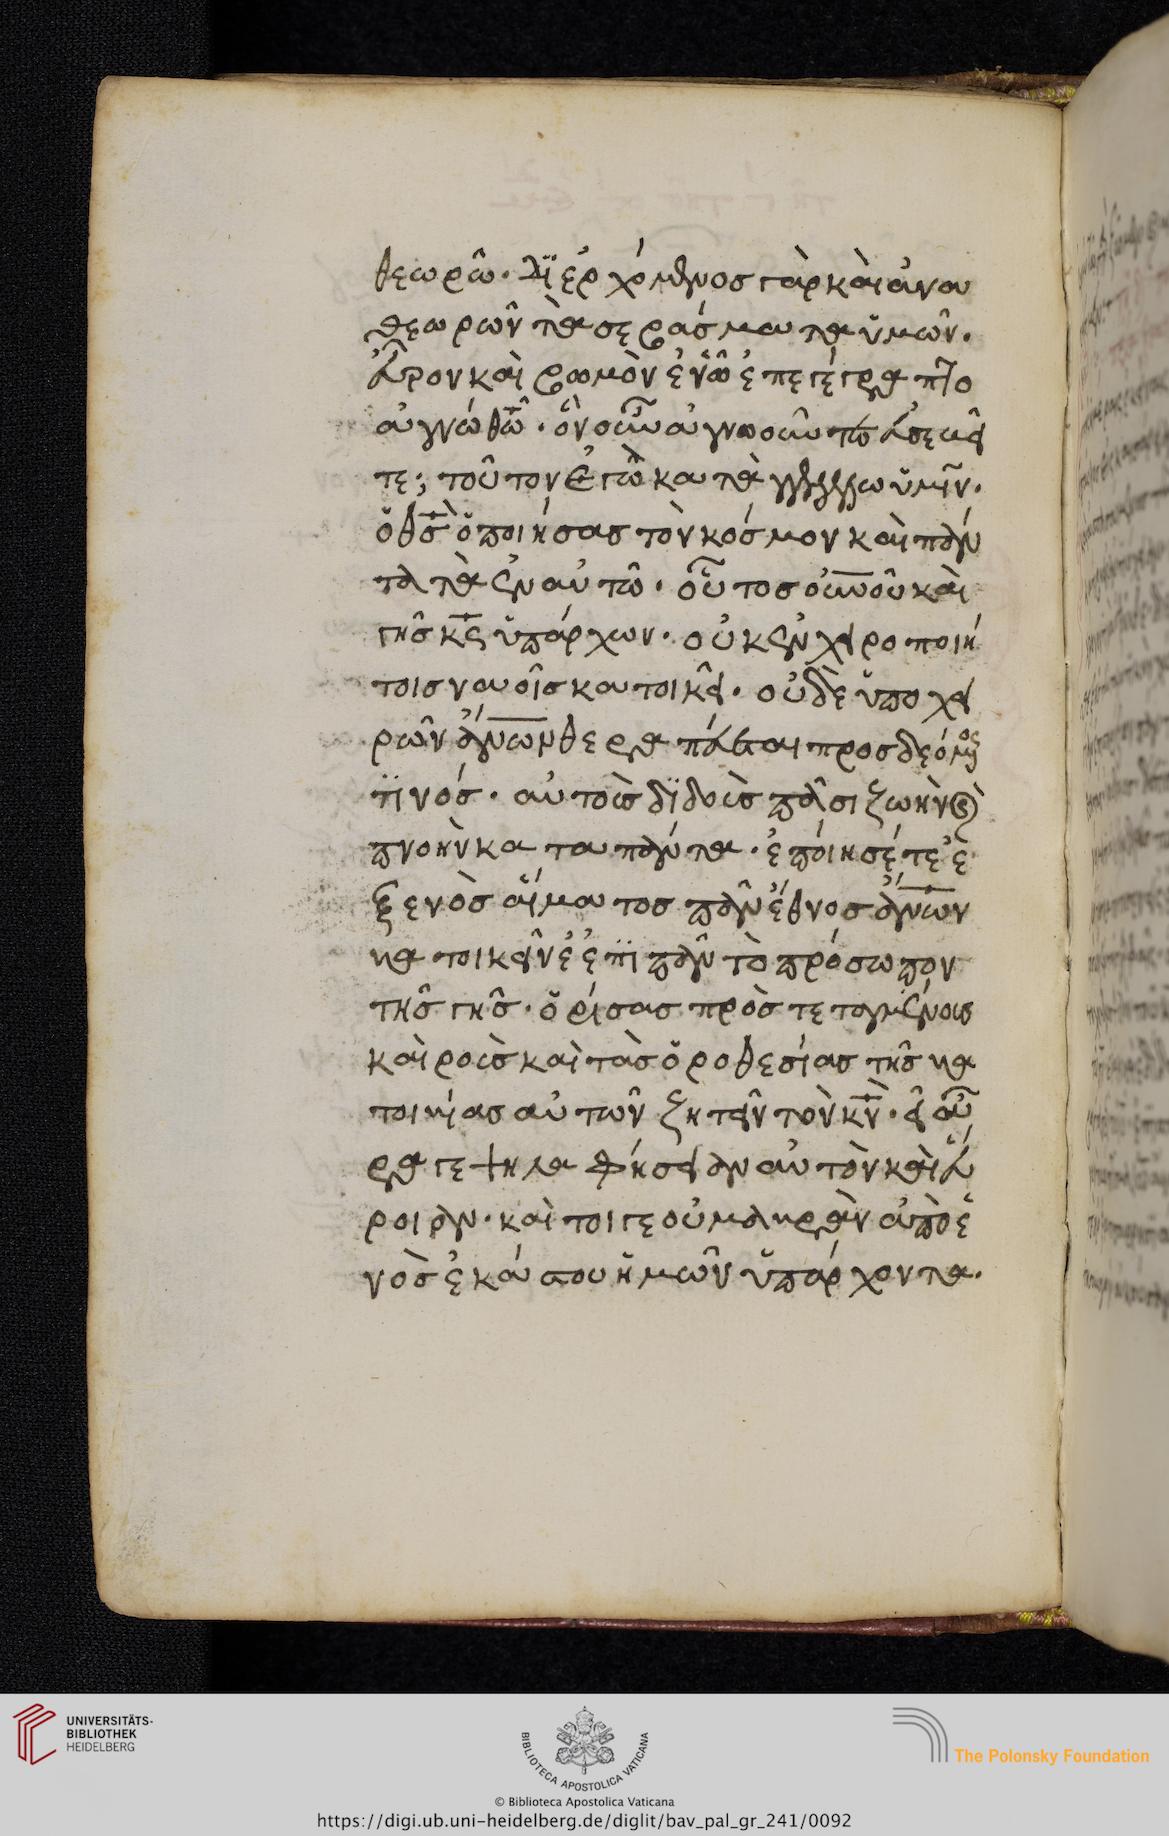 θεωρῶ. διερχόμενος γὰρ καὶ ἀνα
θεωρῶν τὰ σεβάσματα ὑμῶν.
εὗρον καὶ βωμὸν ἐν ᾧ ἐπεγέγραπτο
ἀγνώστω θ̅ω̅. ὃν οὖν ἀγνοοῦντες εὐσεβεῖ
τε; τοῦτον ἐγὼ καταγγέλλω ὑμῖν.
ὁ θ̅ς̅ ὁ ποιήσας τὸν κόσμον καὶ πάν
τα τὰ ἐν αὐτῶ. οὗτος ο̅υ̅ν̅ο̅υ̅ καὶ
γῆς κ̅ς̅ ὑπάρχων. οὐκ ἐν χειροποιή
τοις ναοῖς κατοικεῖ. οὐδὲ ὑπο χει
ρῶν α̅ν̅ω̅ν̅ θεραπεύεται προσδεόμενος
τινός. αὐτὸς διδοὺς πᾶσι ζωὴν καὶ
πνοὴν κατα πάντα. ἐποίησέ τε ἐ
ξ ενὸς αἵματος πᾶν ἔθνος α̅ν̅ω̅ν̅
κατοικεῖν ἐπὶ πᾶν τὸ πρόσωπον
τῆς γῆς. ὁρίσας προστεταγμένους
καὶροὺς καὶ τὰς ὁροθεσίας τῆς κα
τοικίας αὐτῶν ζητεῖν τὸν κ̅ν̅. εἰ ἄ
ρα γε ψηλαφήσειαν αὐτὸν καὶ εὕ
ροιεν. καὶ τοιγε οὐ μακρὰν ἀπὸ ἑ
νὸς ἑκάστου ἡμῶν ὑπάρχοντα.
UNIVERSITÄTS-
BIBLIOTHEK
HEIDELBERG
BIBLIOTECA APOSTOLICA VATICANA
The Polonsky Foundation
© Biblioteca Apostolica Vaticana
https://digi.ub.uni-heidelberg.de/diglit/bav_pal_gr_241/0092